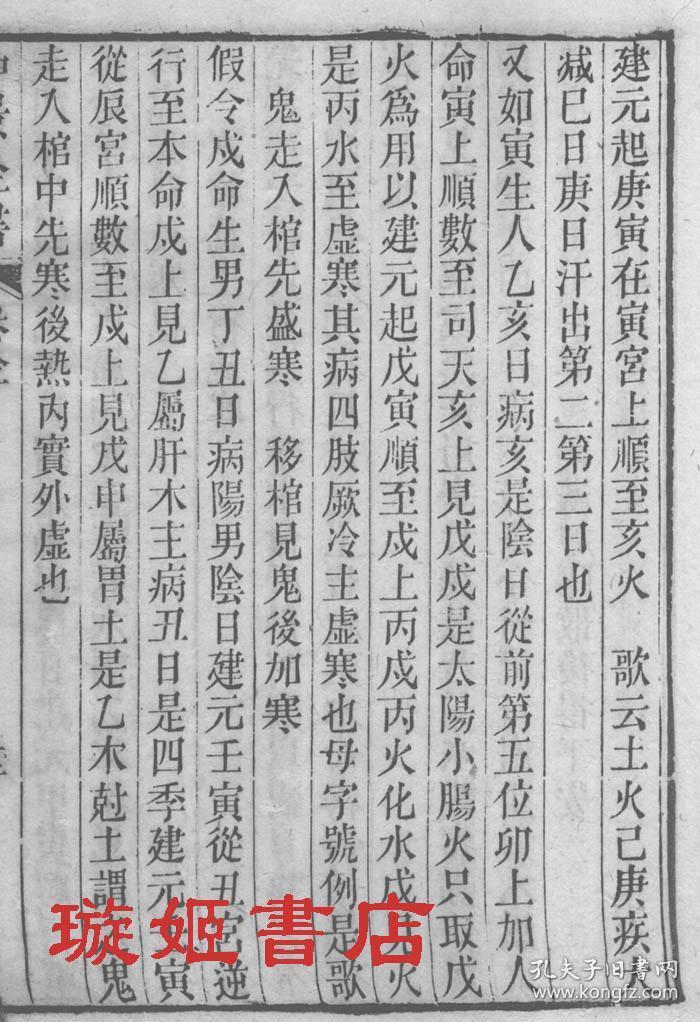 建元起庚寅在寅宮上順至亥火 歌云土火己庚疾
減巳日庚日汗出第二第三日也
又如寅生人乙亥日病亥是陰日從前第五位卯上加人
命寅上順數至司天亥上見戊戌是太陽小腸火只取戊
火爲用以建元起戊寅順至戌上丙戌丙火化水戌見火
是丙水至虛寒其病四肢厥冷主虛寒也母字號例是歌
鬼走入棺先盛寒 移棺見鬼後加寒
假令戌命生男丁丑日病陽男陰日建元壬寅從丑宮逆
行至本命戌上見乙屬肝木主病丑日是四季建元寅
從辰宮順數至戌上見戊申屬胃土是乙木尅土謂之鬼
走入棺中先寒後熱內實外虛也
璇姬書店
孔夫子旧書网
www.kongfz.com